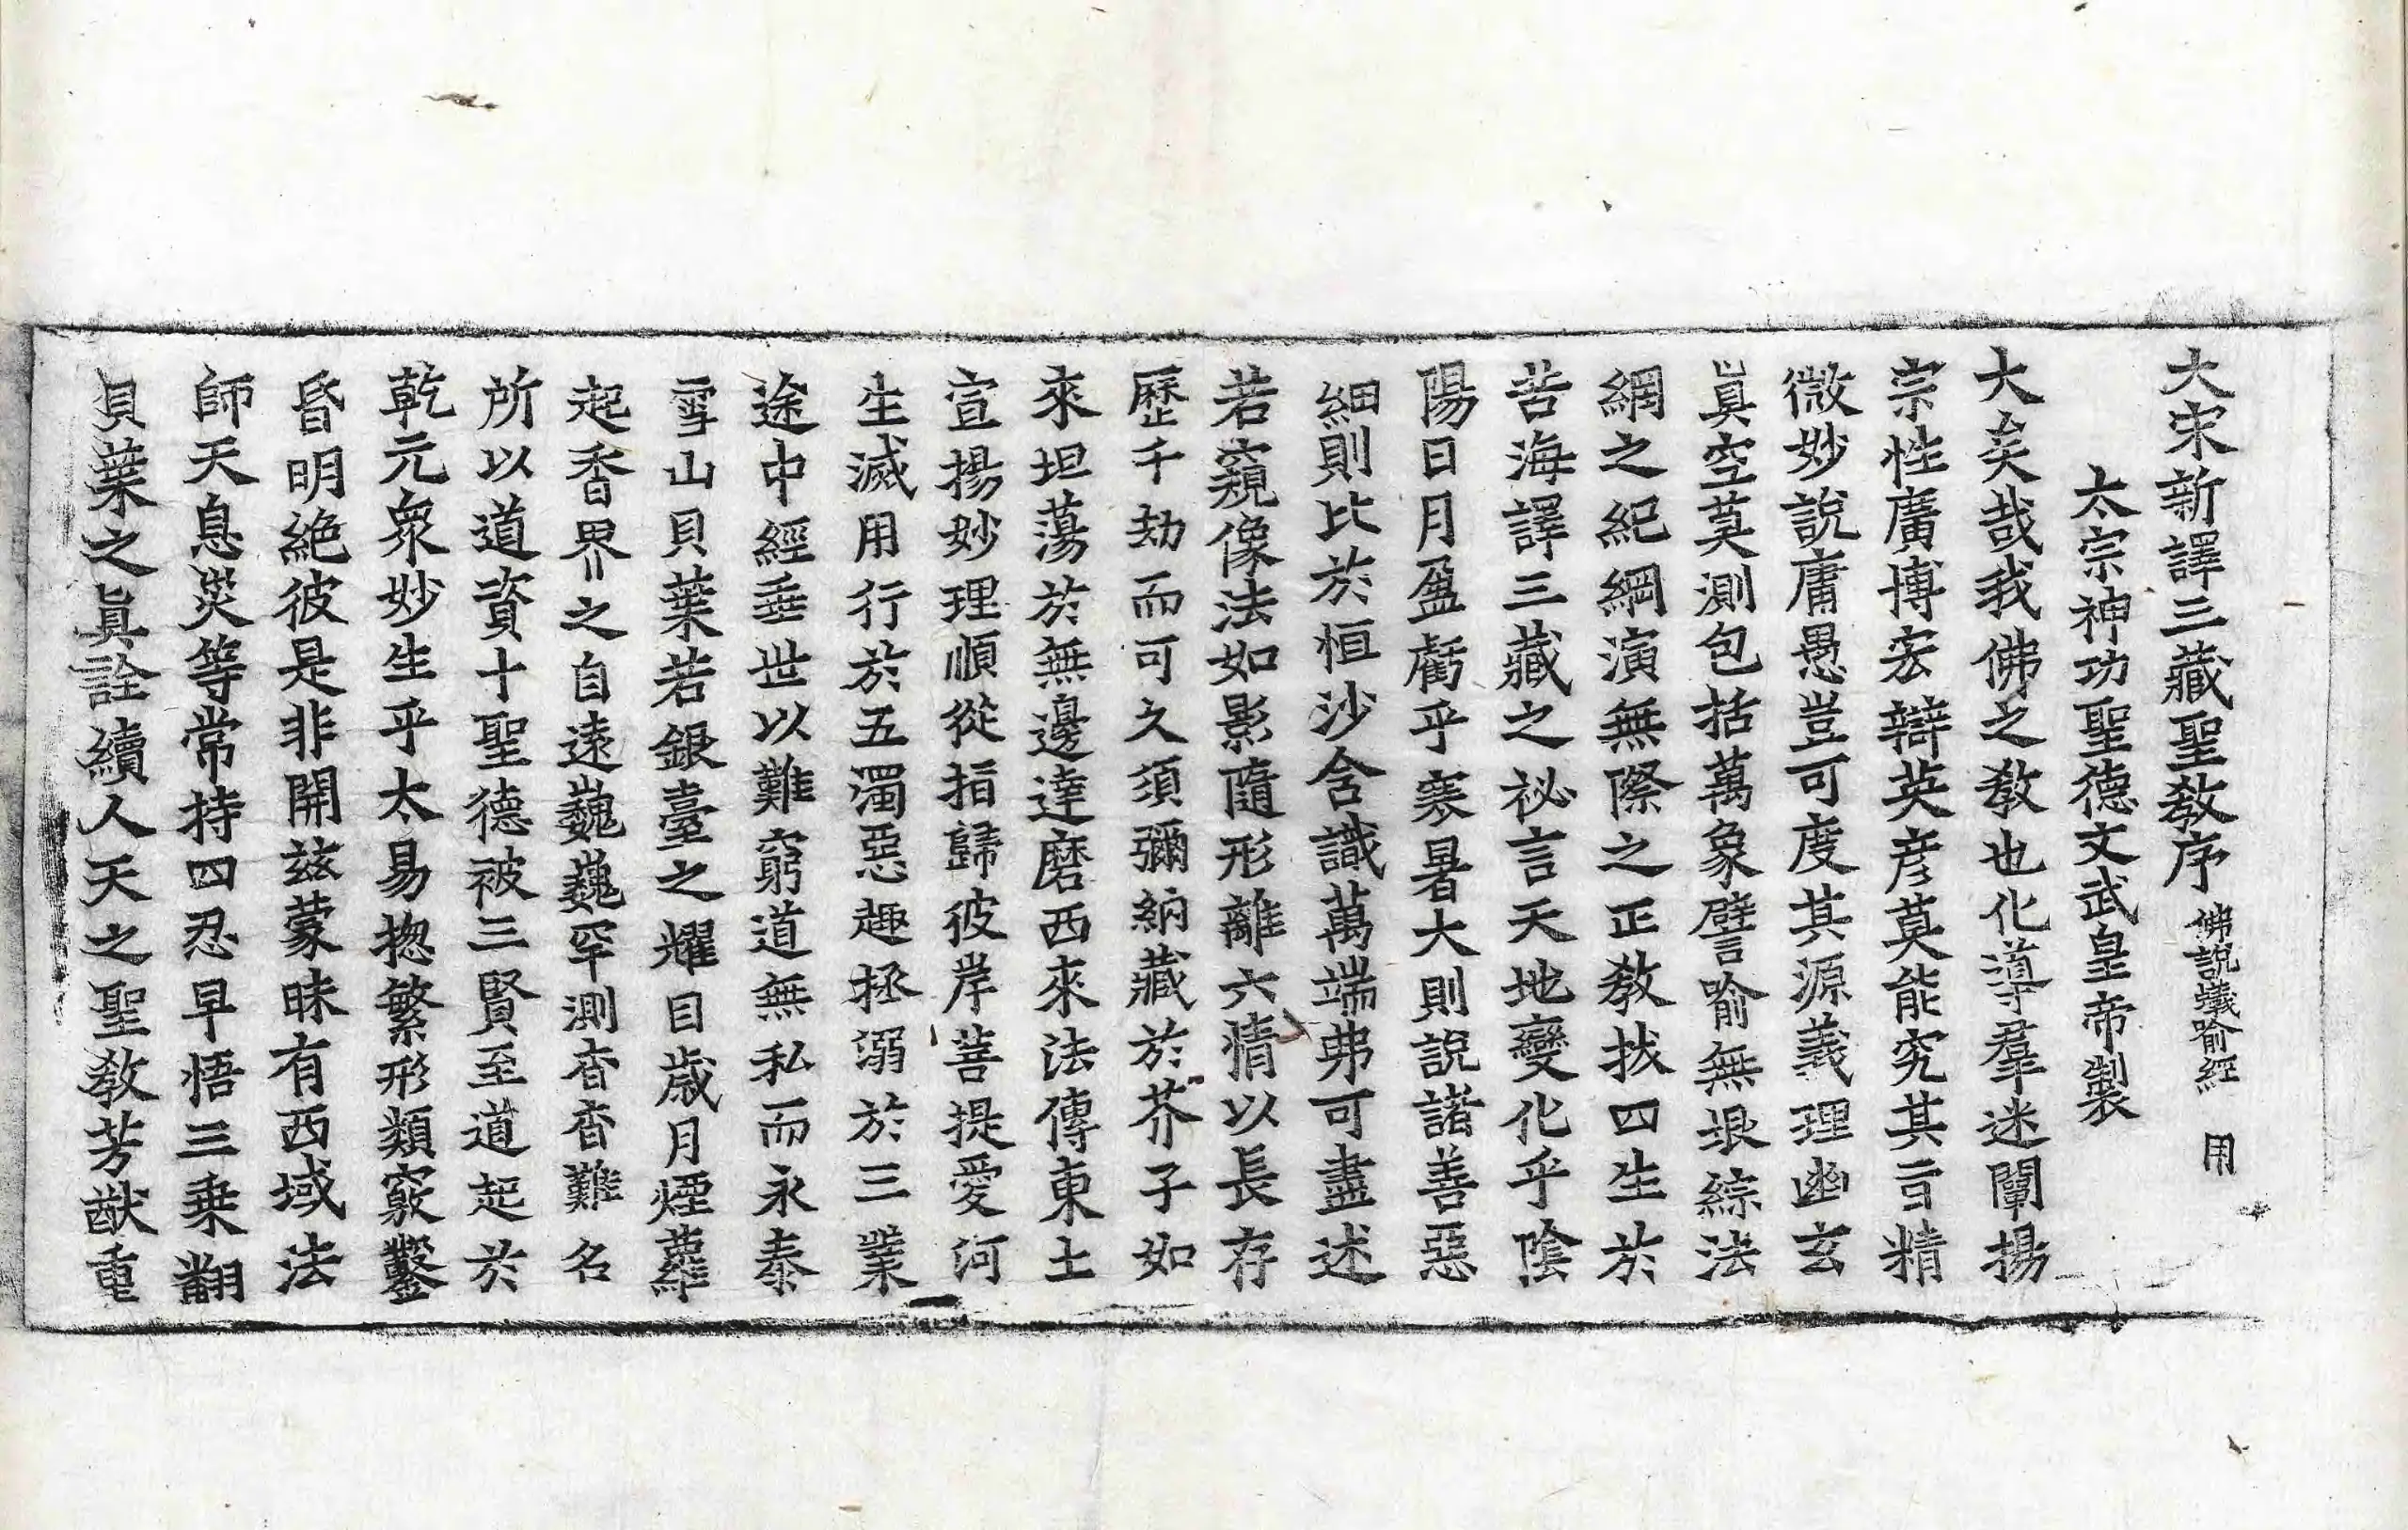 大宋新譯三藏聖教序 佛說蟻喻經 用
太宗神功聖德文武皇帝製
大矣哉我佛之教也化導羣迷闡揚
宗性廣博宏辯英彥莫能究其言精
微妙說庸愚豈可度其源義理幽玄
眞空莫測包括萬象譬喻無垠綜法
網之紀綱演無際之正教拔四生於
苦海譯三藏之祕言天地變化乎陰
陽日月盈虧乎寒暑大則說諸善惡
細則比於恒沙含識萬端弗可盡述
若窺像法如影隨形離六情以長存
歷千劫而可久須彌納藏於芥子如
來坦蕩於無邊達磨西來法傳東土
宣揚妙理順從指歸彼岸菩提愛河
生滅用行於五濁惡趣拯溺於三業
途中經垂世以難窮道無私而永泰
雪山貝葉若銀臺之耀目歲月煙蘿
起香界之自遠巍巍罕測杳杳難名
所以道資十聖德被三賢至道起於
乾元衆妙生乎太易揔繁形類竅鑿
昏明絶彼是非開兹蒙昧有西域法
師天息災等常持四忍早悟三乘翻
貝葉之眞詮續人天之聖教芳猷重